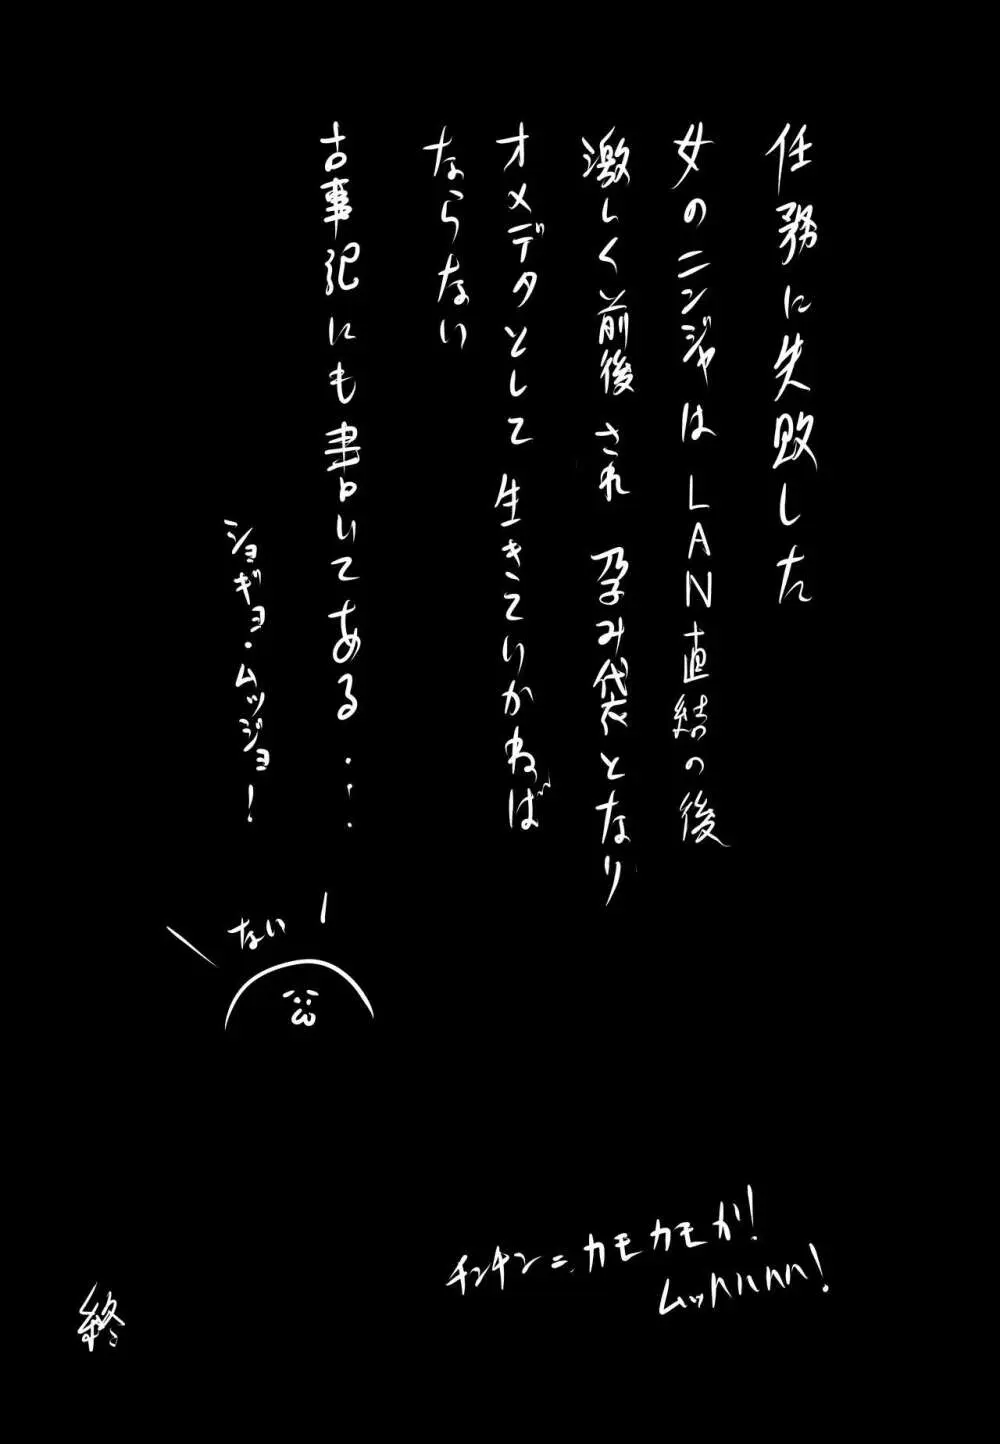 任務に失敗した
女のニンジャはLAN直結の後
激しく前後され 孕み袋となり
オメデタとして生きていかねば
ならない
古事記にも書いてある・・・
ショギョ・ムッジョ！
ない
チンチンニ、カモカモが！
ムッハハハハ！
終